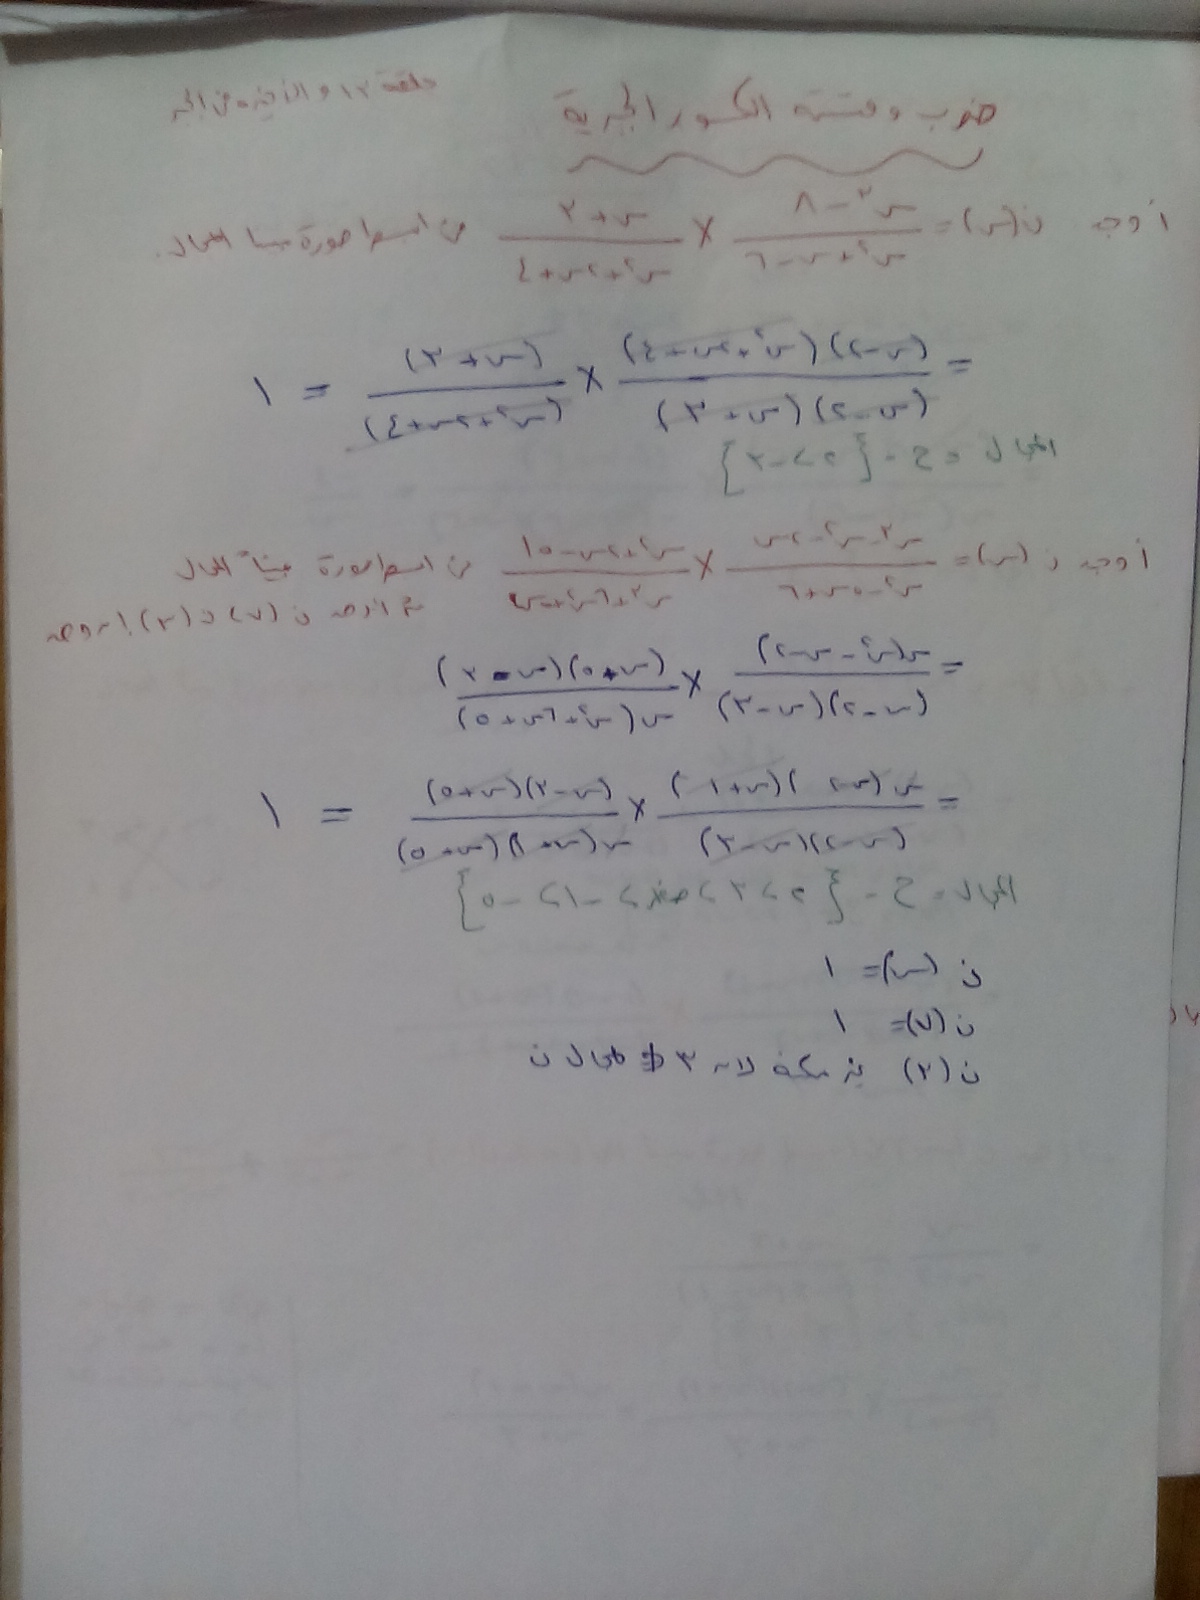 حلقة ١٣ والأخيرة من الجبر
ضرب وقسمة الكسور الجبرية
أوجد ن(س) = (س³ - ٨)/(س² + س - ٦) × (س + ٣)/(س² + ٢س + ٤) في أبسط صورة مبينا المجال.
= (س - ٢)(س² + ٢س + ٤)/(س - ٢)(س + ٣) × (س + ٣)/(س² + ٢س + ٤) = ١
المجال = ح - {٢ ، -٣}
أوجد ن(س) = (س³ - س² - ٢س)/(س² - ٥س + ٦) × (س² + ٢س - ١٥)/(س³ + ٦س² + ٥س) في أبسط صورة مبيناً المجال
ثم أوجد ن(٧) ، ن(٣) إن وجد
= س(س² - س - ٢)/(س - ٢)(س - ٣) × (س + ٥)(س - ٣)/س(س² + ٦س + ٥)
= س(س - ٢)(س + ١)/(س - ٢)(س - ٣) × (س - ٣)(س + ٥)/س(س + ١)(س + ٥) = ١
المجال = ح - {٢ ، ٣ ، صفر ، -١ ، -٥}
ن(س) = ١
ن(٧) = ١
ن(٣) غير ممكنة لأن ٣ ∉ مجال ن